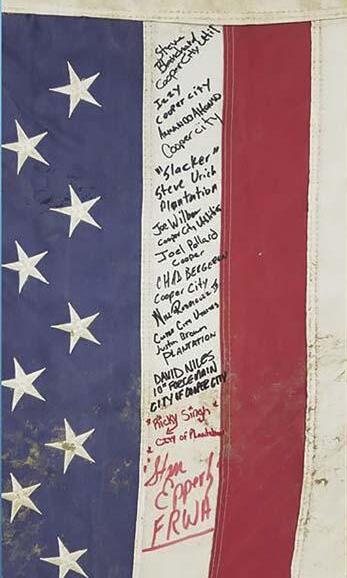 Steve
Blanchard
Cooper City Util
Izzy
Cooper city
Armando
Cooper city
"Slacker"
Steve Urich
Plantation
Joe Wilbur
Cooper City Utilities
Joel Pollard
Cooper
CHAD BERGERON
Cooper City
Cooper City Utilities
Justin Brown
PLANTATION
DAVID NILES
10" FORCEMAIN
CITY OF COOPER CITY
"Ricky Singh"
CITY OF Plantation
Epperly
FRWA